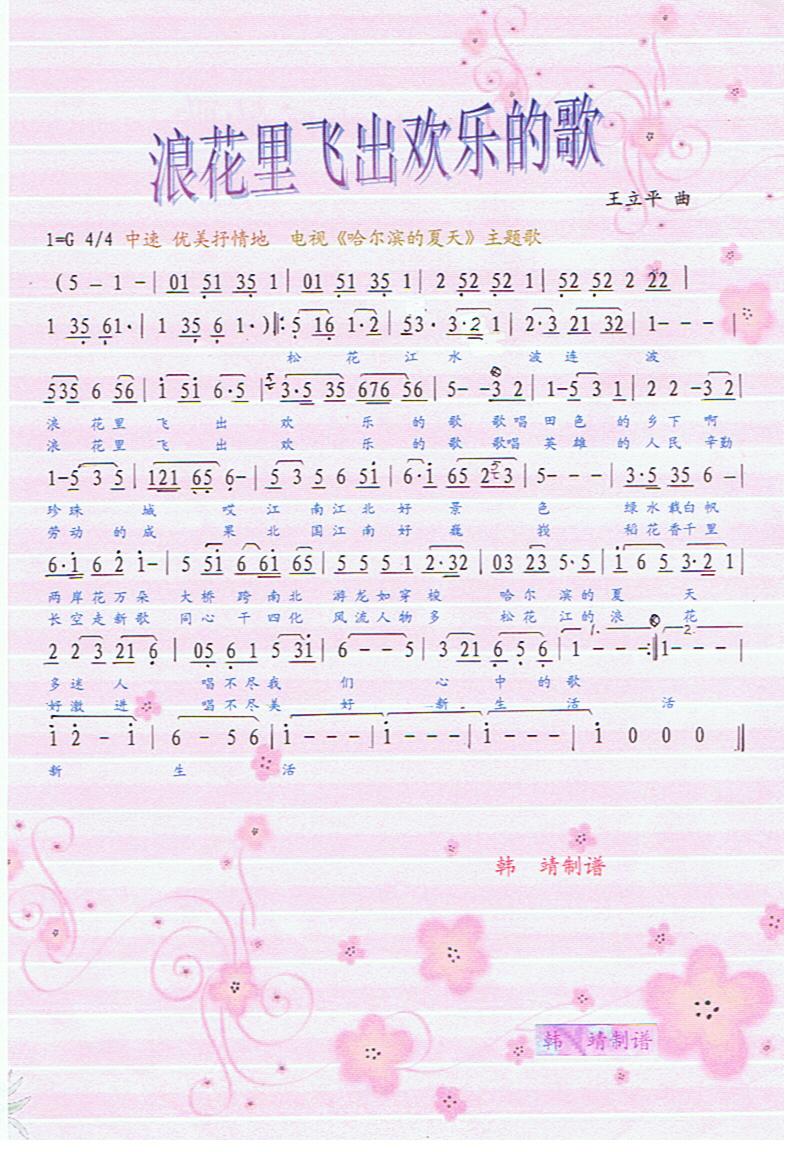 浪花里飞出欢乐的歌
王立平 曲
1=G 4/4 中速 优美抒情地 电视《哈尔滨的夏天》主题歌
(5 - 1 - | 01 51 35 1 | 01 51 35 1 | 2 52 52 1 | 52 52 2 22 |
1 35 61· | 1 35 6 1· )‖: 5 16 1·2 | 53· 3·2 1 | 2·3 21 32 | 1- - - |
松 花 江 水 波 连 波
535 6 56 | i 5i 6·5 | 3·5 35 676 56 | 5- -3 2 | 1-5 3 1 | 2 2 -3 2 |
浪 花 里 飞 出 欢 乐 的 歌 歌唱 田 色 的 乡 下 啊
浪 花 里 飞 出 欢 乐 的 歌 歌唱 英 雄 的 人 民 辛勤
1-5 3 5 | 121 65 6- | 5 3 5 6 5i | 6·i 65 253 | 5- - - | 3·5 35 6 - |
珍珠 城 哎 江 南江 北 好 景 色 绿水 载白 帆
劳动 的 成 果 北 国江 南 好 巍 峩 稻花 香千 里
6·i 62 i- | 5 5i 6 6i 65 | 5 5 5 1 2·32 | 03 23 5·5 | i 6 5 3·2 1 |
两岸 花万 朵 大桥 跨 南北 游龙如穿 梭 哈尔 滨的 夏 天
长空 走新 歌 同心 千 四化 风流人物 多 松花 江的 浪 花
2 2 3 21 6 | 05 6 1 5 3i | 6 - - 5 | 3 21 6 5 6 | 1 - - - :‖ 1- - - |
1. 2.
多 迷 人 唱 不 尽 我 们 心 中 的 歌
好 激 进 唱 不 尽 美 好 新 生 活 活
i 2 - i | 6 - 5 6 | i - - - | i - - - | i - - - | i 0 0 0 ‖
新 生 活
韩 靖制谱
韩 靖制谱